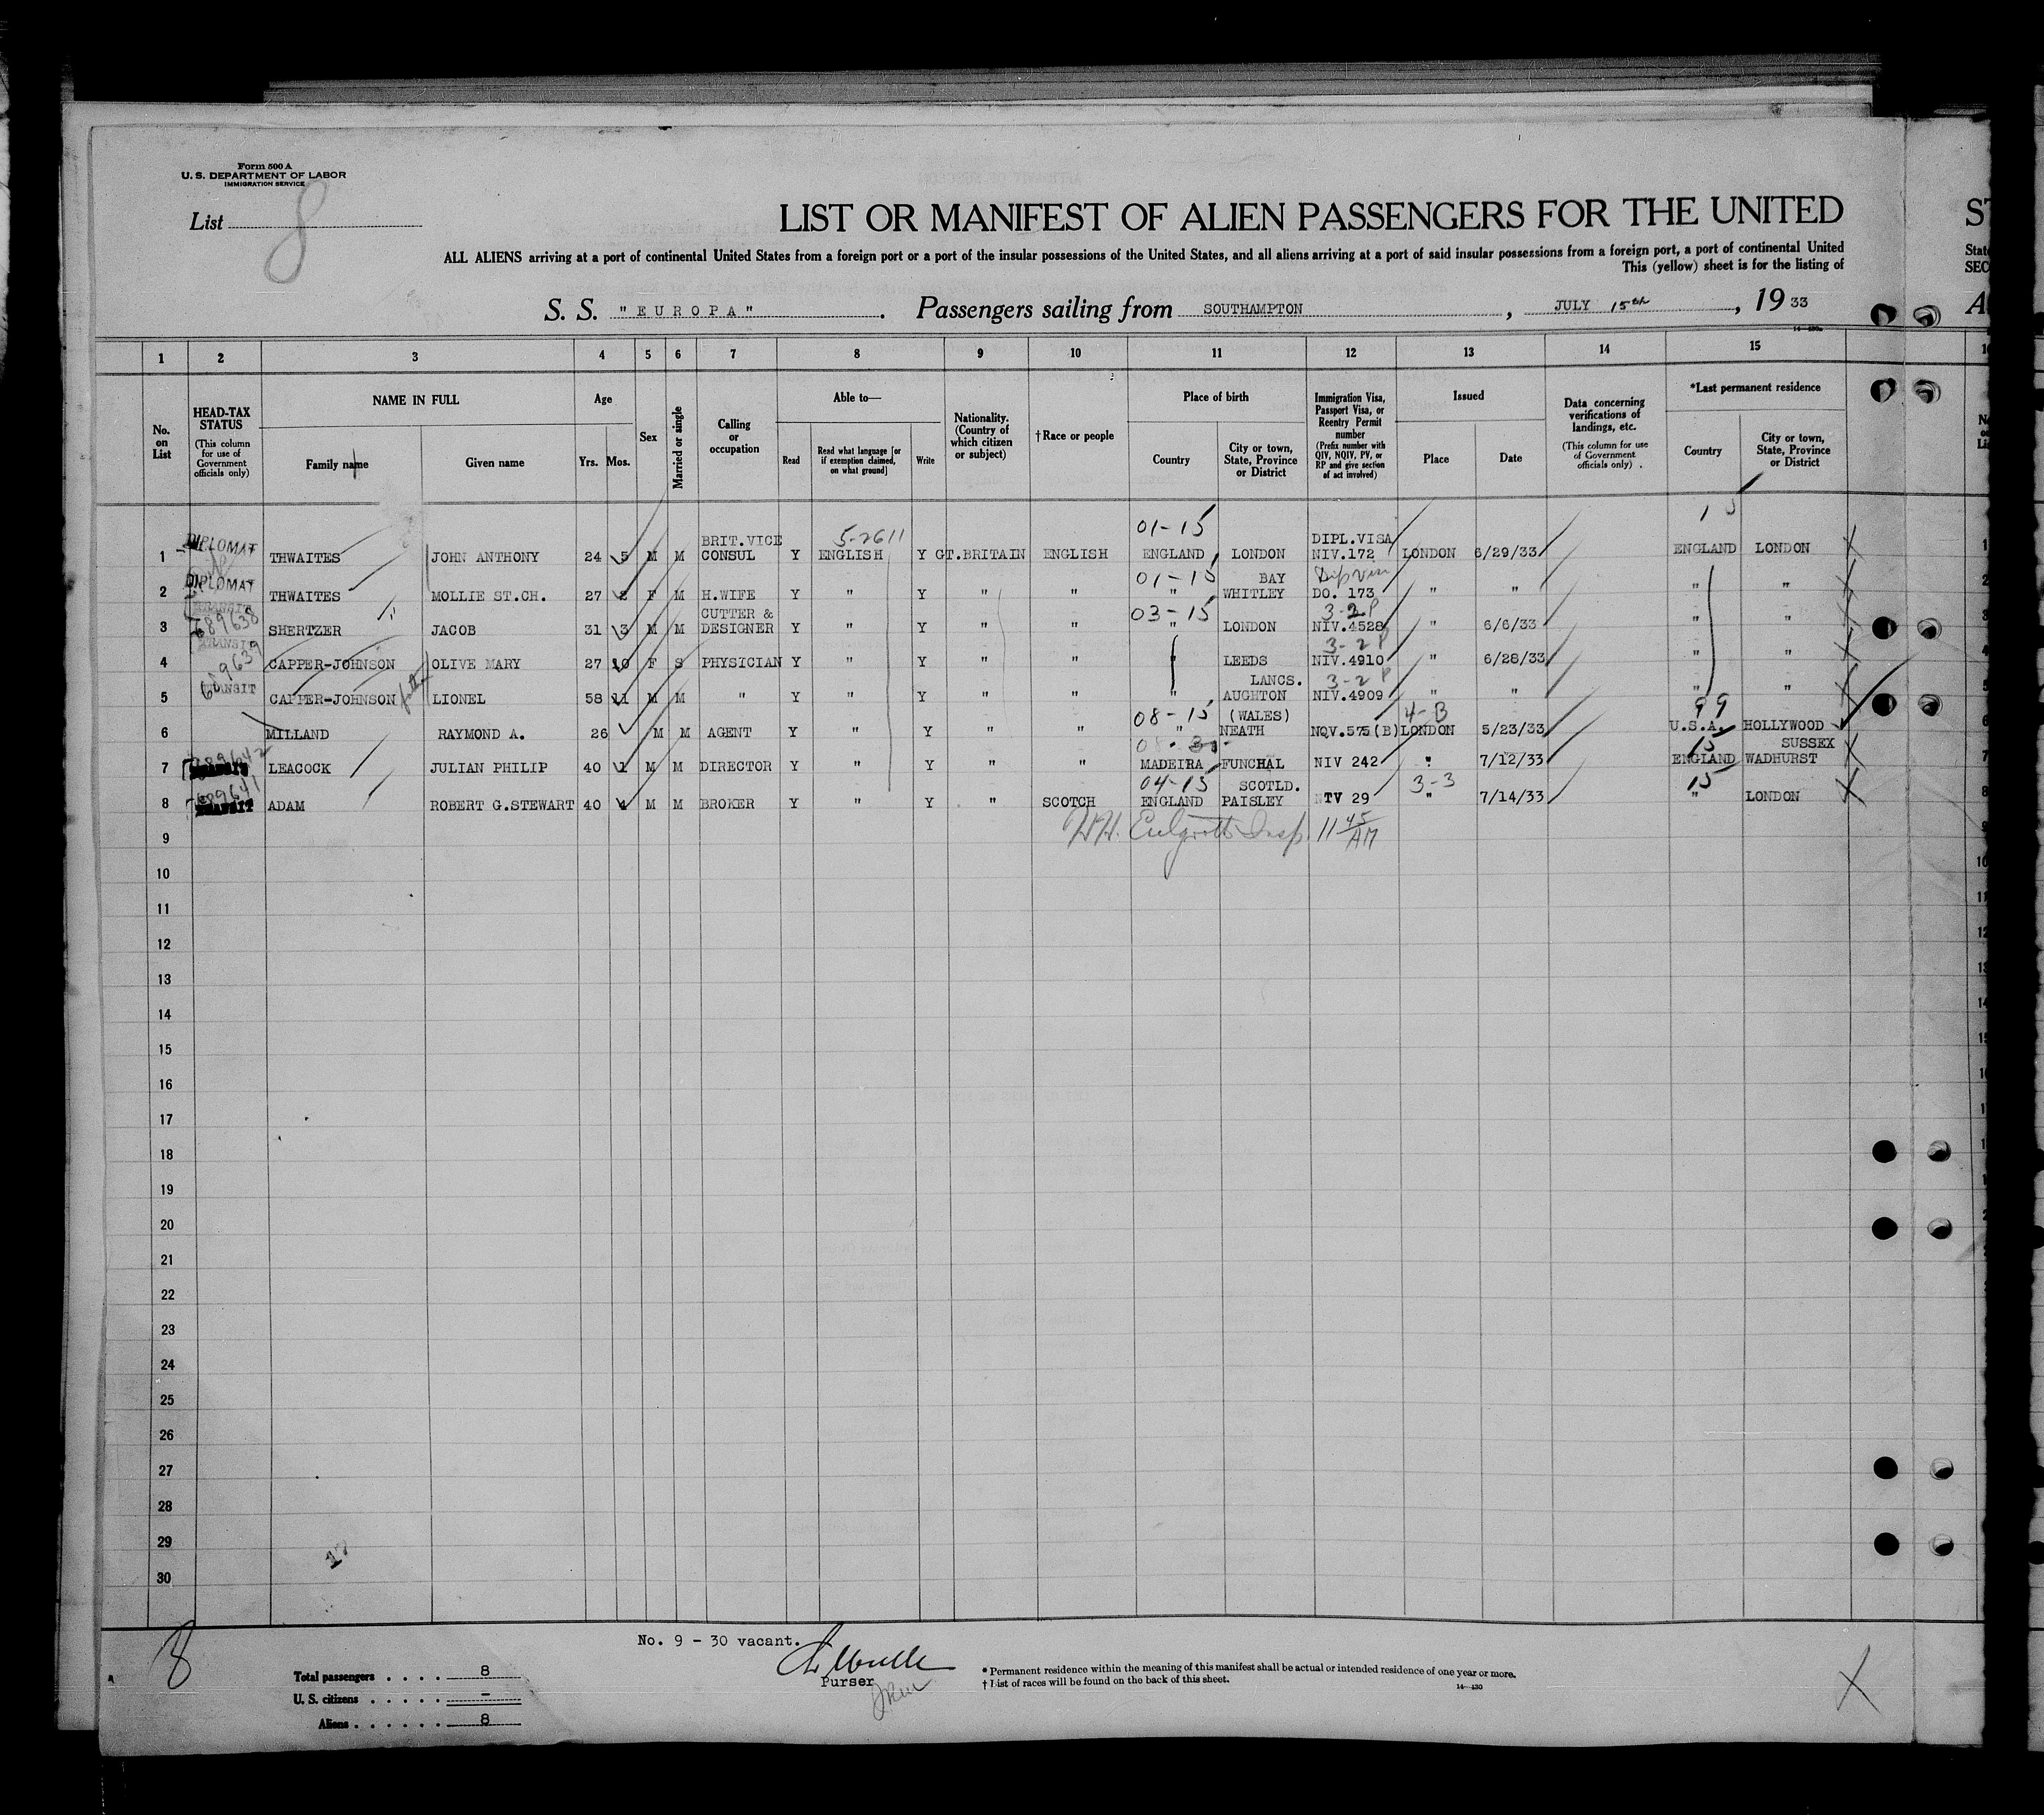 Form 500 A
U. S. DEPARTMENT OF LABOR
IMMIGRATION SERVICE
List 8
LIST OR MANIFEST OF ALIEN PASSENGERS FOR THE UNITED
ALL ALIENS arriving at a port of continental United States from a foreign port or a port of the insular possessions of the United States, and all aliens arriving at a port of said insular possessions from a foreign port, a port of continental United
This (yellow) sheet is for the listing of
S. S. "EUROPA". Passengers sailing from SOUTHAMPTON, JULY 15th, 1933
1 2 3 4 5 6 7 8 9 10 11 12 13 14 15
No. on List
HEAD-TAX STATUS (This column for use of Government officials only)
NAME IN FULL
Family name Given name
Age
Yrs. Mos.
Sex
Married or single
Calling or occupation
Able to—
Read Read what language [or if exemption claimed, on what ground] Write
Nationality. (Country of which citizen or subject)
†Race or people
Place of birth
Country City or town, State, Province or District
Immigration Visa, Passport Visa, or Reentry Permit number (Prefix number with QIV, NQIV, PV, or RP and give section of act involved)
Issued
Place Date
Data concerning verifications of landings, etc. (This column for use of Government officials only)
*Last permanent residence
Country City or town, State, Province or District
5-2611 01-15
1 DIPLOMAT THWAITES JOHN ANTHONY 24 5 M M BRIT.VICE CONSUL Y ENGLISH Y GT.BRITAIN ENGLISH ENGLAND LONDON DIPL.VISA NIV.172 LONDON 6/29/33 ENGLAND LONDON
01-15 Dip visa
2 DIPLOMAT THWAITES MOLLIE ST.CH. 27 2 F M H.WIFE Y " Y " " " BAY WHITLEY DO. 173 " " " "
03-15 3-2P
3 689638 SHERTZER JACOB 31 3 M M CUTTER & DESIGNER Y " Y " " " LONDON NIV.4528 " 6/6/33 " "
TRANSIT 3-2P
4 689639 CAPPER-JOHNSON OLIVE MARY 27 10 F S PHYSICIAN Y " Y " " " LEEDS NIV.4910 " 6/28/33 " "
3-2P
5 TRANSIT CAPPER-JOHNSON LIONEL 58 11 M M " Y " Y " " " LANCS. AUGHTON NIV.4909 " " " "
08-15 4-B 99
6 MILLAND RAYMOND A. 26 M M AGENT Y " Y " " " (WALES) NEATH NQV.575(B) LONDON 5/23/33 U.S.A. HOLLYWOOD
15
7 689642 TRANSIT LEACOCK JULIAN PHILIP 40 1 M M DIRECTOR Y " Y " " MADEIRA FUNCHAL NIV 242 " 7/12/33 ENGLAND SUSSEX WADHURST
04-15 3-3 15
8 689641 TRANSIT ADAM ROBERT G.STEWART 40 4 M M BROKER Y " Y " SCOTCH ENGLAND SCOTLD. PAISLEY NTV 29 " 7/14/33 " LONDON
9 Insp. 11 45 AM
10
11
12
13
14
15
16
17
18
19
20
21
22
23
24
25
26
27
28
29
30
No. 9 - 30 vacant.
8
Purser
Total passengers . . . . 8
U. S. citizens . . . . . -
Aliens . . . . . . 8
* Permanent residence within the meaning of this manifest shall be actual or intended residence of one year or more.
† List of races will be found on the back of this sheet.
14—430